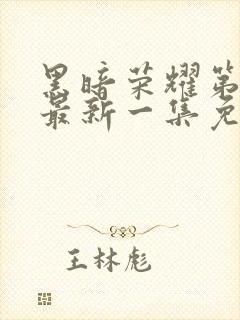 黑暗荣耀第
最新一集免
王林彪